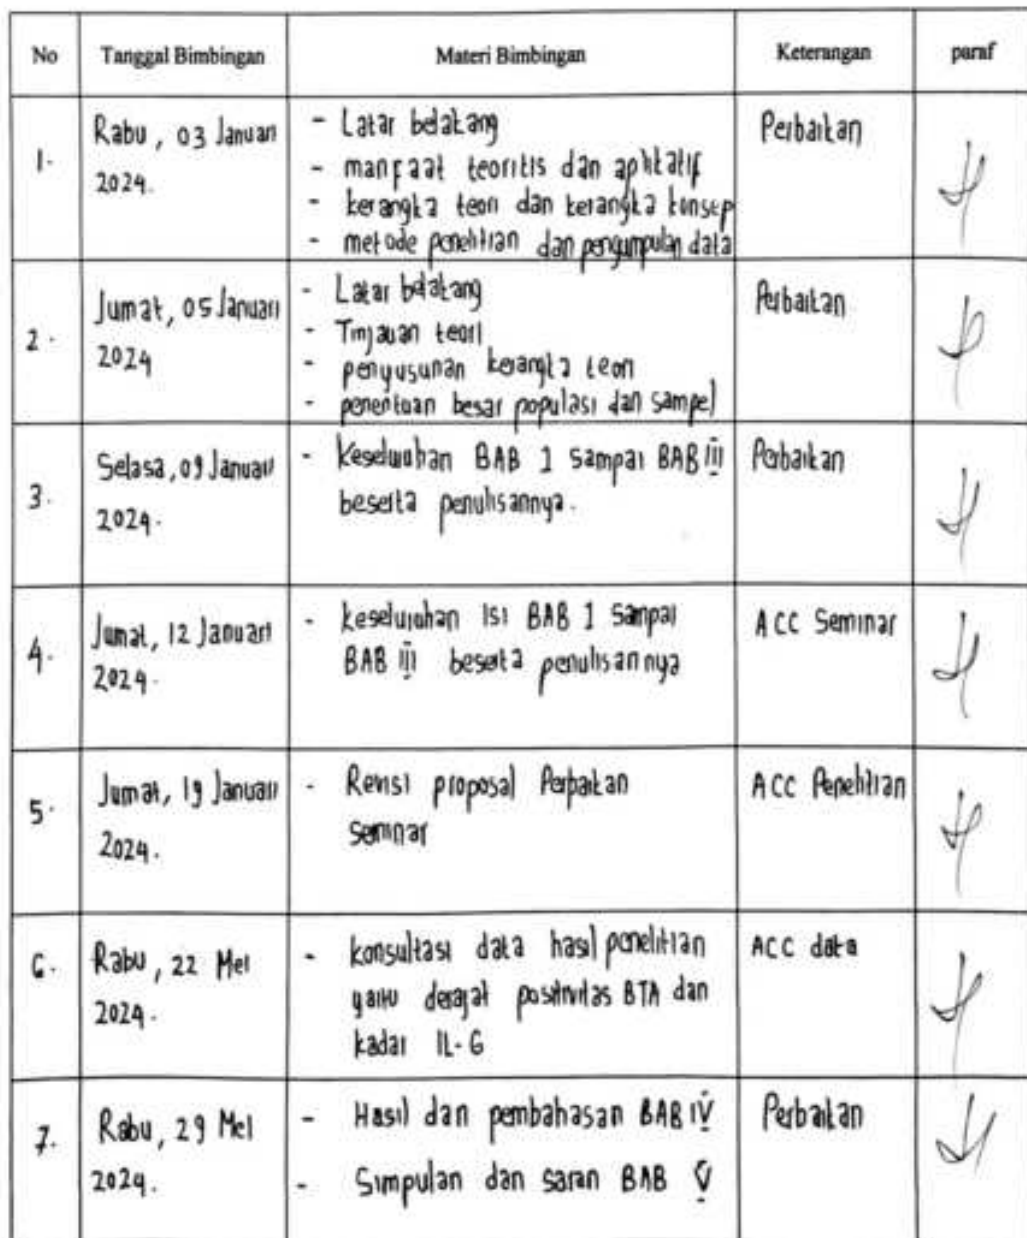 No Tanggal Bimbingan Materi Bimbingan Keterangan paraf
1. Rabu, 03 Januari 2024. - Latar belakang Perbaikan
- manfaat teoritis dan aplikatif
- kerangka teori dan kerangka konsep
- metode penelitian dan pengumpulan data
2. Jumat, 05 Januari 2024 - Latar belakang Perbaikan
- Tinjauan teori
- penyusunan kerangka teori
- penentuan besar populasi dan sampel
3. Selasa, 09 Januari 2024. - Keseluruhan BAB I sampai BAB III Perbaikan
beserta penulisannya.
4. Jumat, 12 Januari 2024. - keseluruhan isi BAB I sampai ACC Seminar
BAB III beserta penulisannya
5. Jumat, 19 Januari 2024. - Revisi proposal Perbaikan ACC Penelitian
seminar
6. Rabu, 22 Mei 2024. - konsultasi data hasil penelitian ACC data
yaitu derajat positivitas BTA dan
kadar IL-6
7. Rabu, 29 Mei 2024. - Hasil dan pembahasan BAB IV Perbaikan
- Simpulan dan saran BAB V